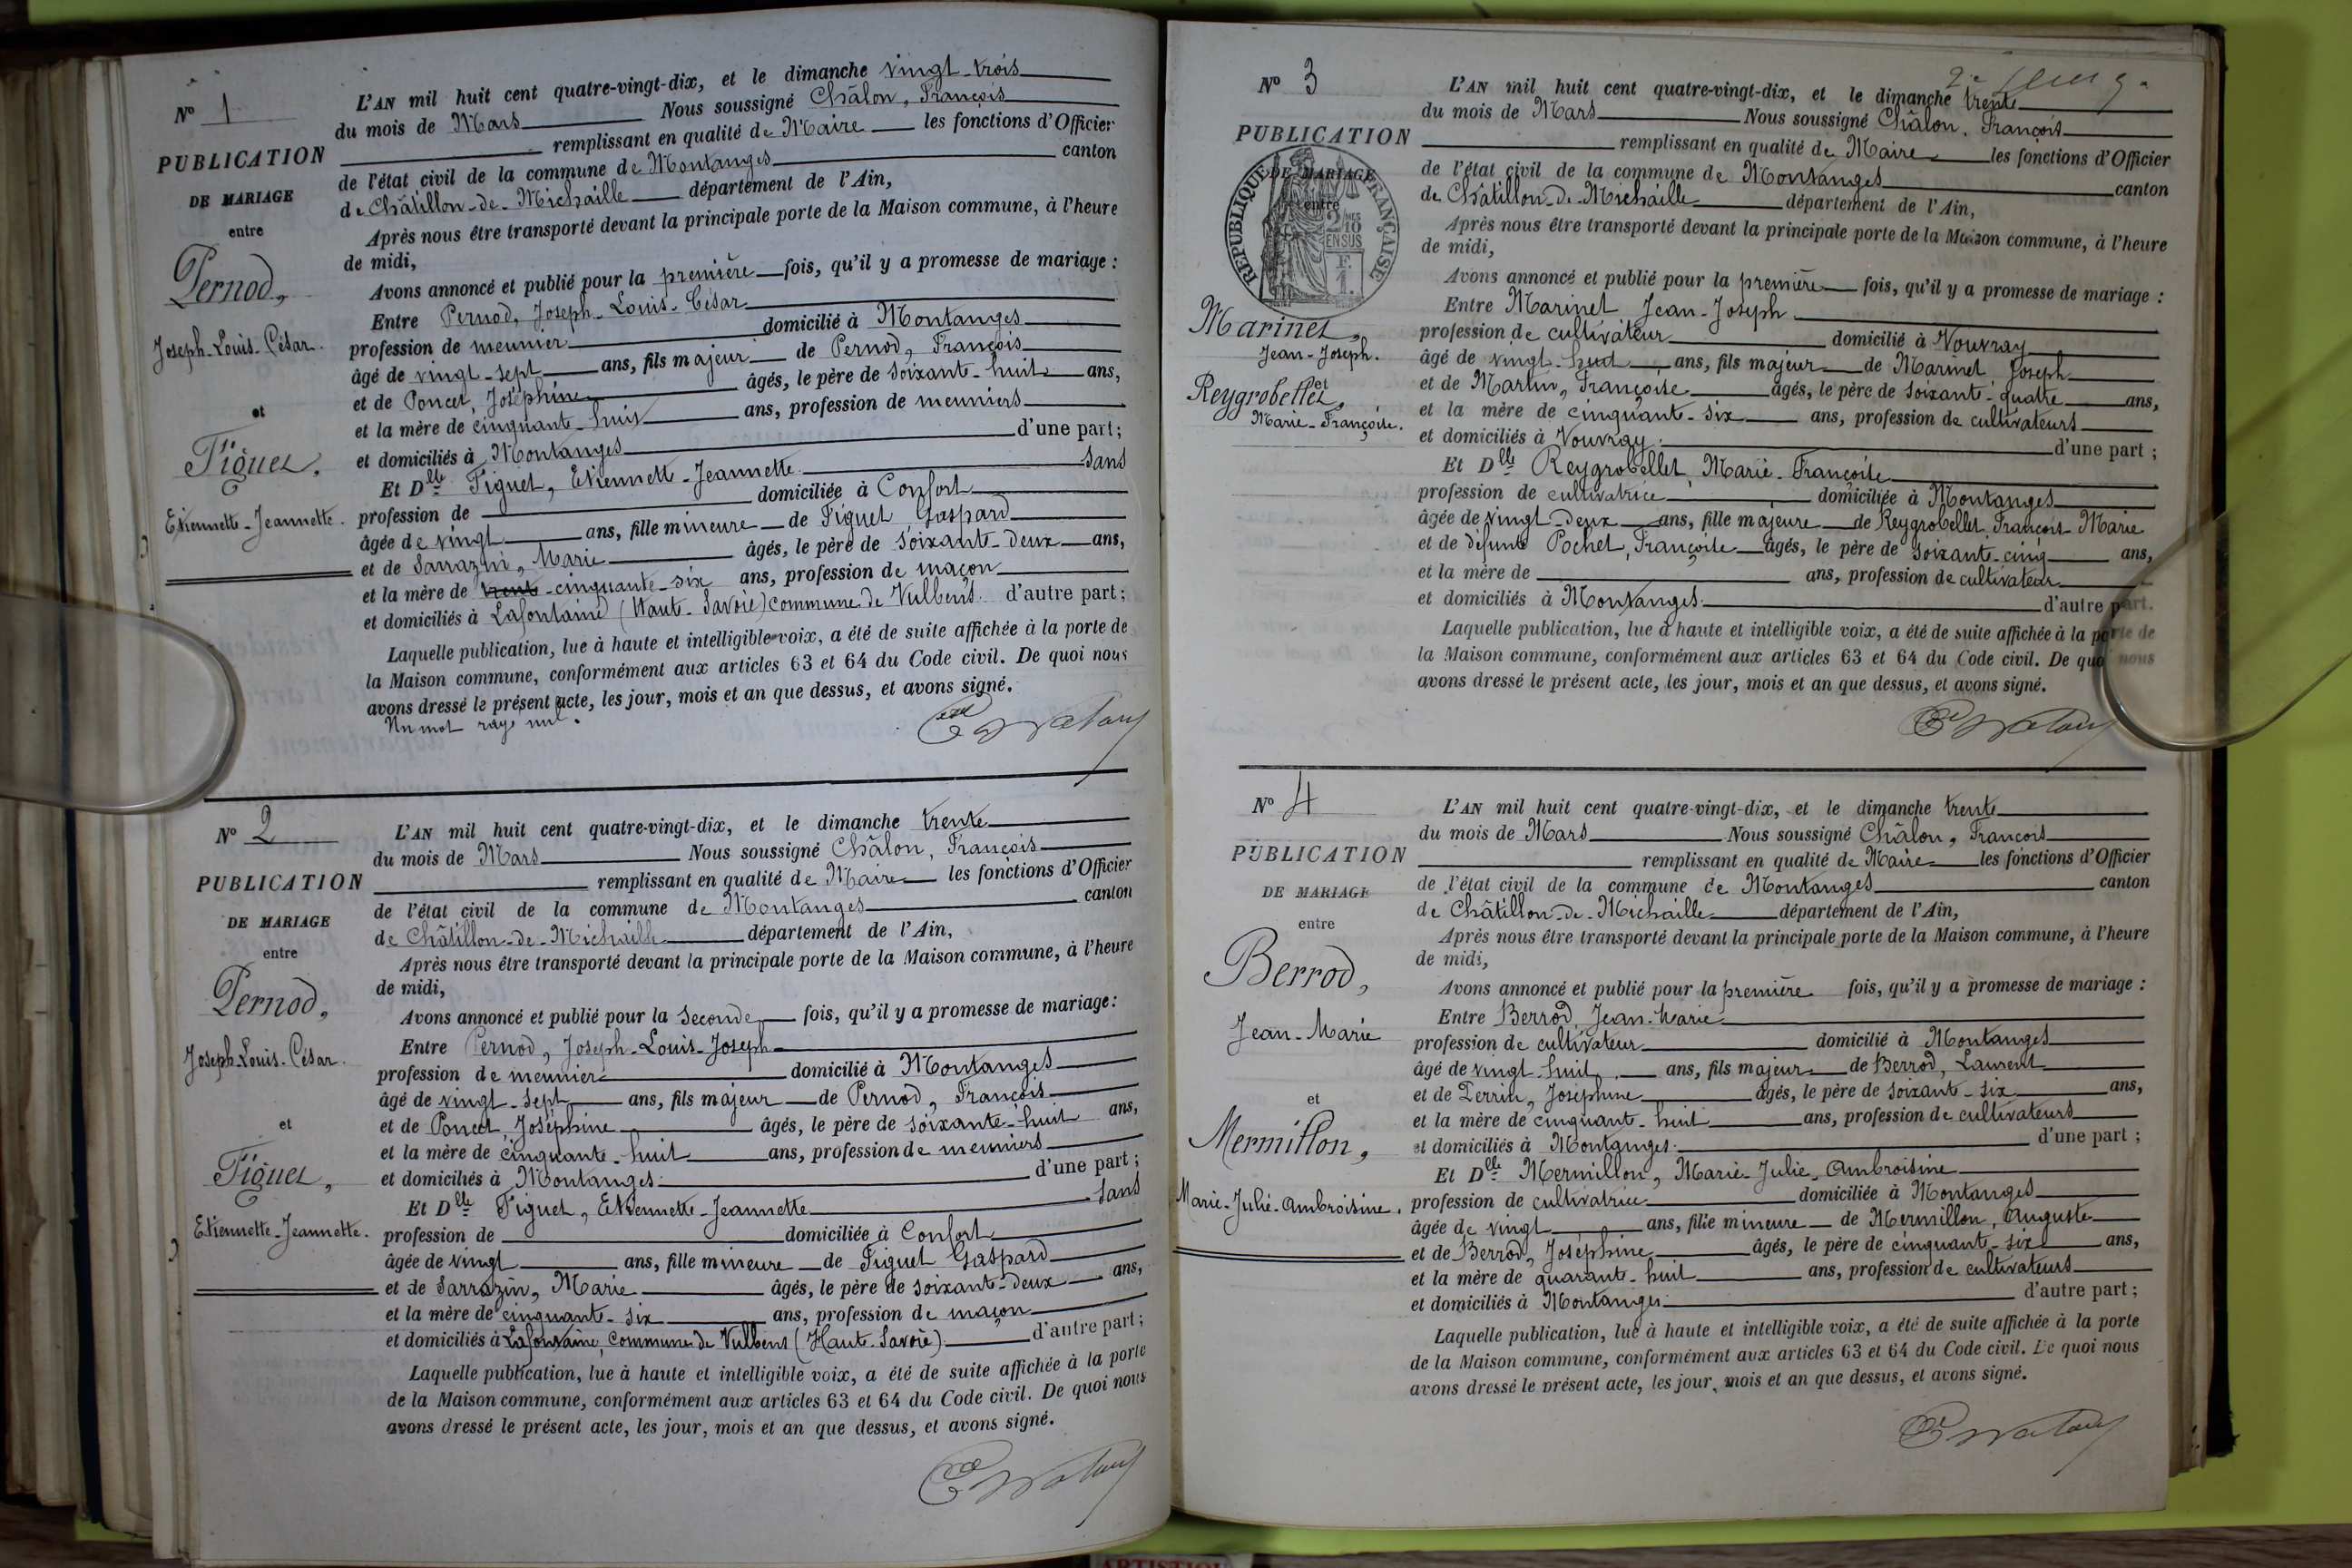 Nº 1
PUBLICATION
DE MARIAGE
entre
Pernod,
Joseph-Louis-César.
et
Figuet,
Etiennette-Jeannette.
L'AN mil huit cent quatre-vingt-dix, et le dimanche vingt-trois
du mois de Mars Nous soussigné Châlon, François
remplissant en qualité de Maire les fonctions d'Officier
de l'état civil de la commune de Montanges canton
de Châtillon-de-Michaille département de l'Ain,
Après nous être transporté devant la principale porte de la Maison commune, à l'heure
de midi,
Avons annoncé et publié pour la première fois, qu'il y a promesse de mariage :
Entre Pernod, Joseph-Louis-César
profession de meunier domicilié à Montanges
âgé de vingt-sept ans, fils majeur de Pernod, François
et de Poncet, Joséphine âgés, le père de soixante-huit ans,
et la mère de cinquante-huit ans, profession de meuniers
et domiciliés à Montanges d'une part;
Et Dlle Figuet, Etiennette-Jeannette. sans
profession de domiciliée à Confort
âgée de vingt ans, fille mineure de Figuet Gaspard
et de Sarrazin, Marie âgés, le père de soixante-deux ans,
et la mère de trent-cinquante-six ans, profession de maçon
et domiciliés à Lafontaine (Haute-Savoie) commune de Vulbens. d'autre part;
Laquelle publication, lue à haute et intelligible voix, a été de suite affichée à la porte de
la Maison commune, conformément aux articles 63 et 64 du Code civil. De quoi nous
avons dressé le présent acte, les jour, mois et an que dessus, et avons signé.
Un mot rayé nul.
Nº 2
PUBLICATION
DE MARIAGE
entre
Pernod,
Joseph-Louis-César.
et
Figuet,
Etiennette-Jeannette.
L'AN mil huit cent quatre-vingt-dix, et le dimanche trente
du mois de Mars Nous soussigné Châlon, François
remplissant en qualité de Maire les fonctions d'Officier
de l'état civil de la commune de Montanges canton
de Châtillon-de-Michaille département de l'Ain,
Après nous être transporté devant la principale porte de la Maison commune, à l'heure
de midi,
Avons annoncé et publié pour la seconde fois, qu'il y a promesse de mariage:
Entre Pernod, Joseph-Louis-Joseph
profession de meunier domicilié à Montanges
âgé de vingt-sept ans, fils majeur de Pernod, François
et de Poncet, Joséphine âgés, le père de soixante-huit ans,
et la mère de cinquante-huit ans, profession de meuniers
et domiciliés à Montanges. d'une part;
Et Dlle Figuet, Etiennette-Jeannette sans
profession de domiciliée à Confort
âgée de vingt ans, fille mineure de Figuet Gaspard
et de Sarrazin, Marie âgés, le père de soixante-deux ans,
et la mère de cinquante-six ans, profession de maçon
et domiciliés à Lafontaine, commune de Vulbens (Haute-Savoie) d'autre part;
Laquelle publication, lue à haute et intelligible voix, a été de suite affichée à la porte
de la Maison commune, conformément aux articles 63 et 64 du Code civil. De quoi nous
avons dressé le présent acte, les jour, mois et an que dessus, et avons signé.
Nº 3
PUBLICATION
DE MARIAGE
entre
RÉPUBLIQUE FRANÇAISE
2/10
EN SUS
Marinet,
Jean-Joseph.
et
Reygrobellet,
Marie-Françoise.
L'AN mil huit cent quatre-vingt-dix, et le dimanche trente
du mois de Mars Nous soussigné Châlon, François
remplissant en qualité de Maire les fonctions d'Officier
de l'état civil de la commune de Montanges canton
de Châtillon-de-Michaille département de l'Ain,
Après nous être transporté devant la principale porte de la Maison commune, à l'heure
de midi,
Avons annoncé et publié pour la première fois, qu'il y a promesse de mariage :
Entre Marinet Jean-Joseph
profession de cultivateur domicilié à Vouvray
âgé de vingt-huit ans, fils majeur de Marinet Joseph
et de Martin, Françoise âgés, le père de soixante-quatre ans,
et la mère de cinquante-six ans, profession de cultivateurs
et domiciliés à Vouvray. d'une part ;
Et Dlle Reygrobellet, Marie-Françoise
profession de cultivatrice domiciliée à Montanges
âgée de vingt-deux ans, fille majeure de Reygrobellet François-Marie
et de défunte Pochet, Françoise âgés, le père de soixante-cinq ans,
et la mère de ans, profession de cultivateur
et domiciliés à Montanges. d'autre part.
Laquelle publication, lue à haute et intelligible voix, a été de suite affichée à la porte de
la Maison commune, conformément aux articles 63 et 64 du Code civil. De quoi nous
avons dressé le présent acte, les jour, mois et an que dessus, et avons signé.
Nº 4
PUBLICATION
DE MARIAGE
entre
Berrod,
Jean-Marie
et
Mermillon,
Marie-Julie-Ambroisine.
L'AN mil huit cent quatre-vingt-dix, et le dimanche trente
du mois de Mars Nous soussigné Châlon, François
remplissant en qualité de Maire les fonctions d'Officier
de l'état civil de la commune de Montanges canton
de Châtillon-de-Michaille département de l'Ain,
Après nous être transporté devant la principale porte de la Maison commune, à l'heure
de midi,
Avons annoncé et publié pour la première fois, qu'il y a promesse de mariage :
Entre Berrod, Jean-Marie
profession de cultivateur domicilié à Montanges
âgé de vingt-huit ans, fils majeur de Berrod, Laurent
et de Perrin, Joséphine âgés, le père de soixante-six ans,
et la mère de cinquant-huit ans, profession de cultivateurs
et domiciliés à Montanges. d'une part ;
Et Dlle Mermillon, Marie-Julie-Ambroisine
profession de cultivatrice domiciliée à Montanges
âgée de vingt ans, fille mineure de Mermillon, Auguste
et de Berrod, Joséphine âgés, le père de cinquant-six ans,
et la mère de quarant-huit ans, profession de cultivateurs
et domiciliés à Montanges. d'autre part ;
Laquelle publication, lue à haute et intelligible voix, a été de suite affichée à la porte
de la Maison commune, conformément aux articles 63 et 64 du Code civil. De quoi nous
avons dressé le présent acte, les jour, mois et an que dessus, et avons signé.